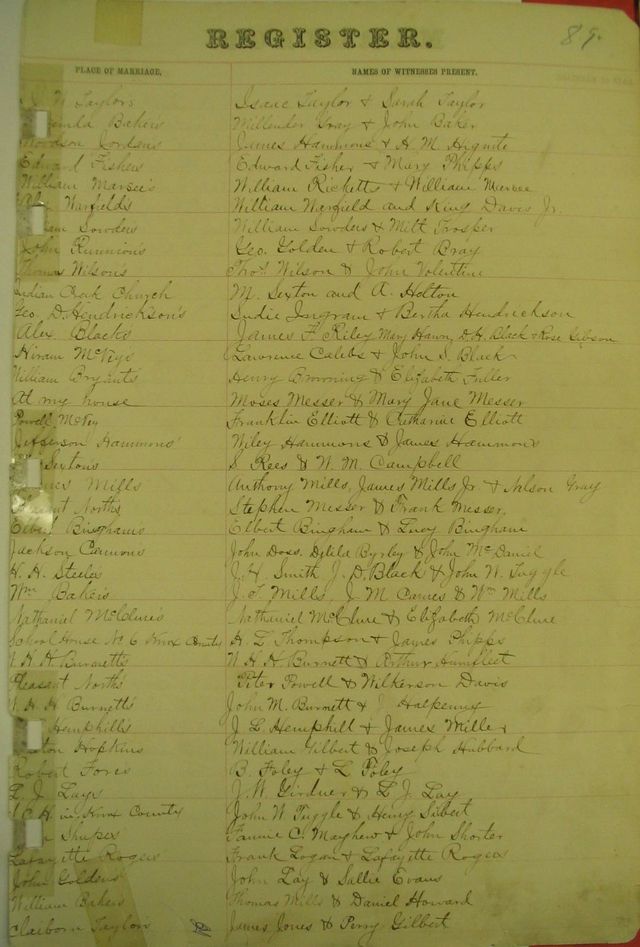 REGISTER.
89.
PLACE OF MARRIAGE. NAMES OF WITNESSES PRESENT.
Taylors Isaac Taylor & Sarah Taylor
Bakers Millender Gray & John Baker
Jordens James Hammons & H. M. Hignite
Edward Fishers Edward Fisher & Mary Phipps
William Marsee's William Ricketts & William
Warfield's William Warfield and King Davis Jr.
Sowders William Sowders & Milt Trosper
John Runnion's Geo. Golden & Robert Bray
Thomas Wilsons Thos. Wilson & John Volentine
Indian Creek Church M. Sexton and A. Helton
Geo. D. Hendrickson's Ingram & Bertha Hendrickson
Alex Blacks James F. Riley Mary Hawn, D. H. Black & Rose Gibson
Hiram McVeys Lawrence Calebs & John S. Black
William Bryant's Henry Browning & Elizabeth Fuller
At my house Moses Messer & Mary Jane Messer
Powell McVey Franklin Elliott & Catharine Elliott
Jefferson Hammons' Wiley Hammons & James Hammons
Sextons S. Rees & W. M. Campbell
Mills Anthony Mills, James Mills Jr. & Nelson Gray
Pleasant Norths Stephen Messer & Frank Messer.
Elbert Binghams Elbert Bingham & Lucy Bingham
Jackson Carmons John Doss. Dilila Byrley & John McDaniel
H. H. Steeles J. H. Smith J. D. Black & John W. Tuggle
Wm Bakers J. T. Mills, J. M. Carnes & Wm Mills
Nathaniel McClure's Nathaniel McClure & Elizabeth McClure
School House No 6 Knox County H. L. Thompson & James Phipps
W. H. H. Burnetts W. H. H. Burnett & Arthur Humfleet
Pleasant Norths Peter Powell & Wilkerson Davis
W. H. H. Burnetts John M. Burnett & Halpenny
Hemphill's J L Hemphill & James Miller
Hopkins William Gilbert & Joseph Hubbard
Robert Fore's B. Foley & L Foley
L. J. Lays J. W. Girdner & L. J. Lay
C. H. in Knox County John W Tuggle & Henry Sibert
Shupes Fannie C. Mayhew & John Shorter
Lafayette Rogers Frank Logan & Lafayette Rogers
John Goldens John Lay & Sallie Evans
William Bakers Thomas Mills & Daniel Howard
Claiborn Taylors James Jones & Perry Gilbert